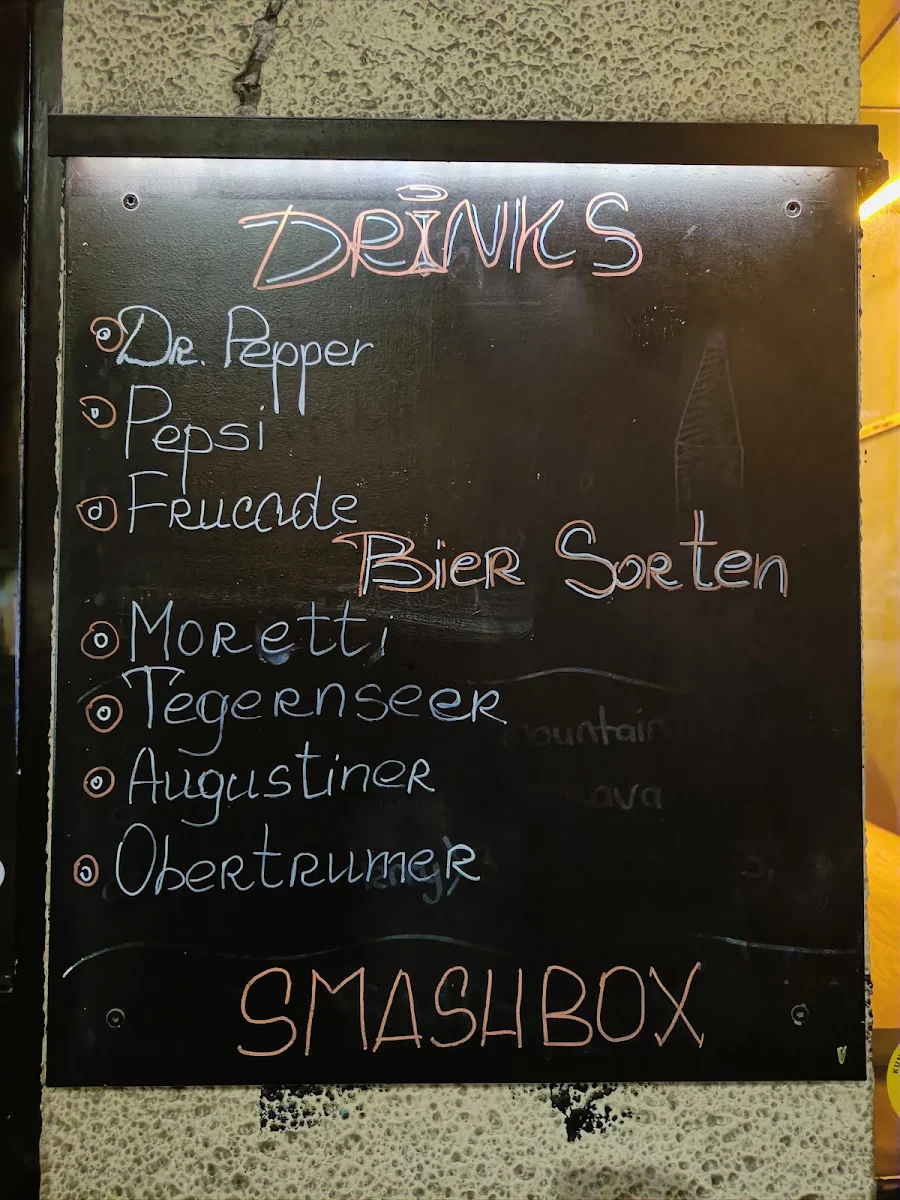 DRiNKS
DR. Pepper
Pepsi
FRucade
BieR SoRten
MoRetti
TegeRnseeR
AugustineR
ObeRtRumeR
SMASHBOX